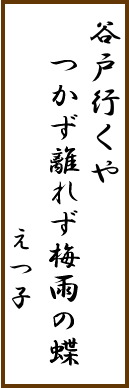 谷戸行くや
つかず離れず梅雨の蝶
えつ子